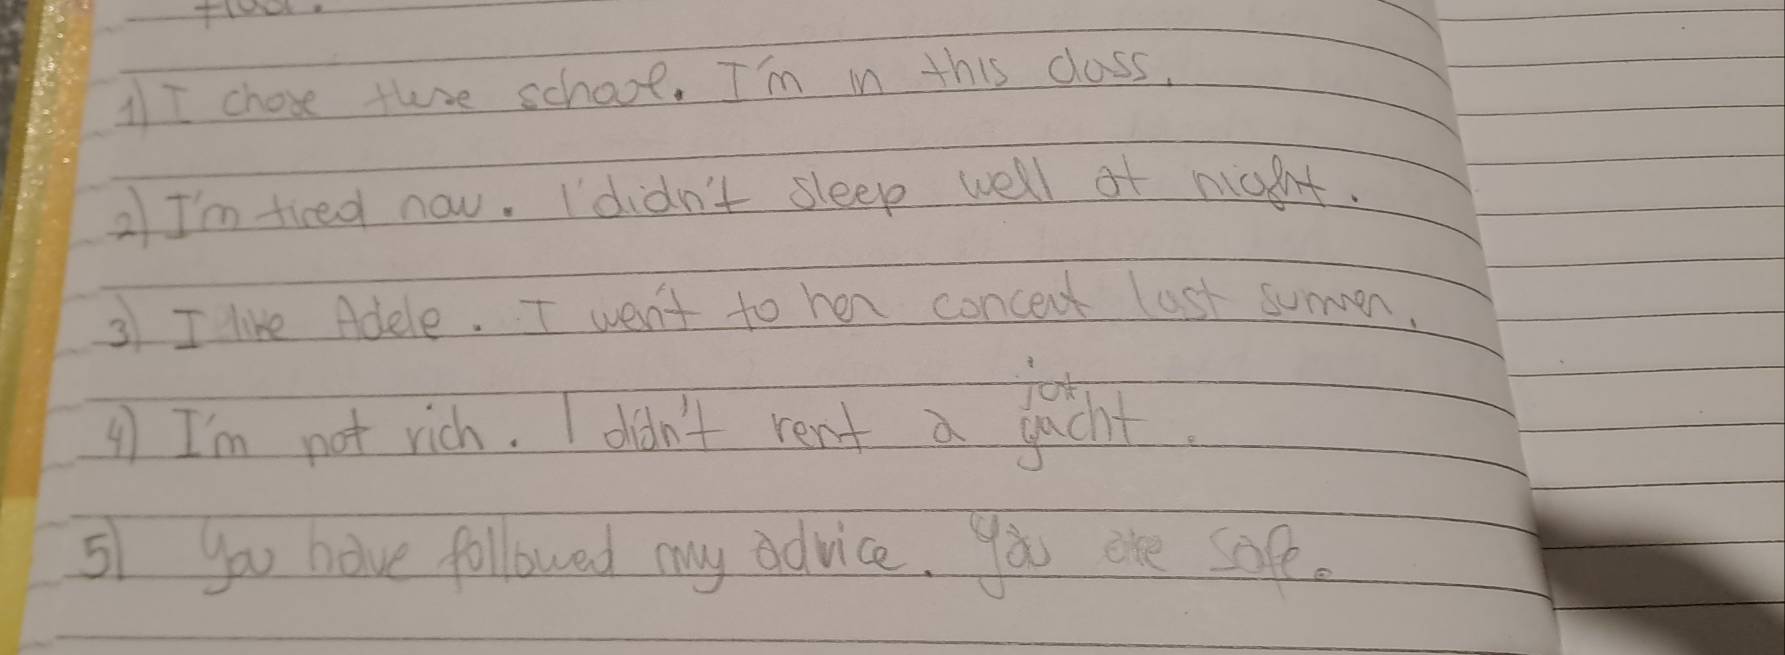 floor.
1) I chose these schoole. I'm in this class.
2) I'm tired now. I didn't sleep well at night.
3) I like Adele. I went to her concert last summer.
jot
4) I'm not rich. I didn't rent a yacht.
5) You have followed my advice. You are safe.